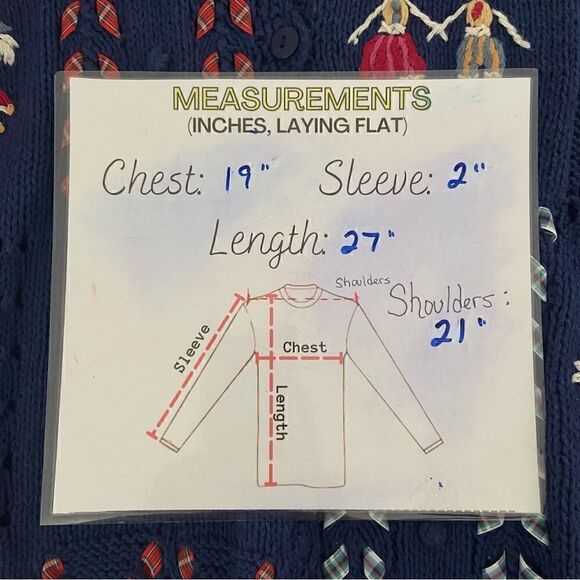 MEASUREMENTS
(INCHES, LAYING FLAT)
Chest: 19" Sleeve: 2"
Length: 27"
Shoulders
Shoulders:
21"
Sleeve
Chest
Length